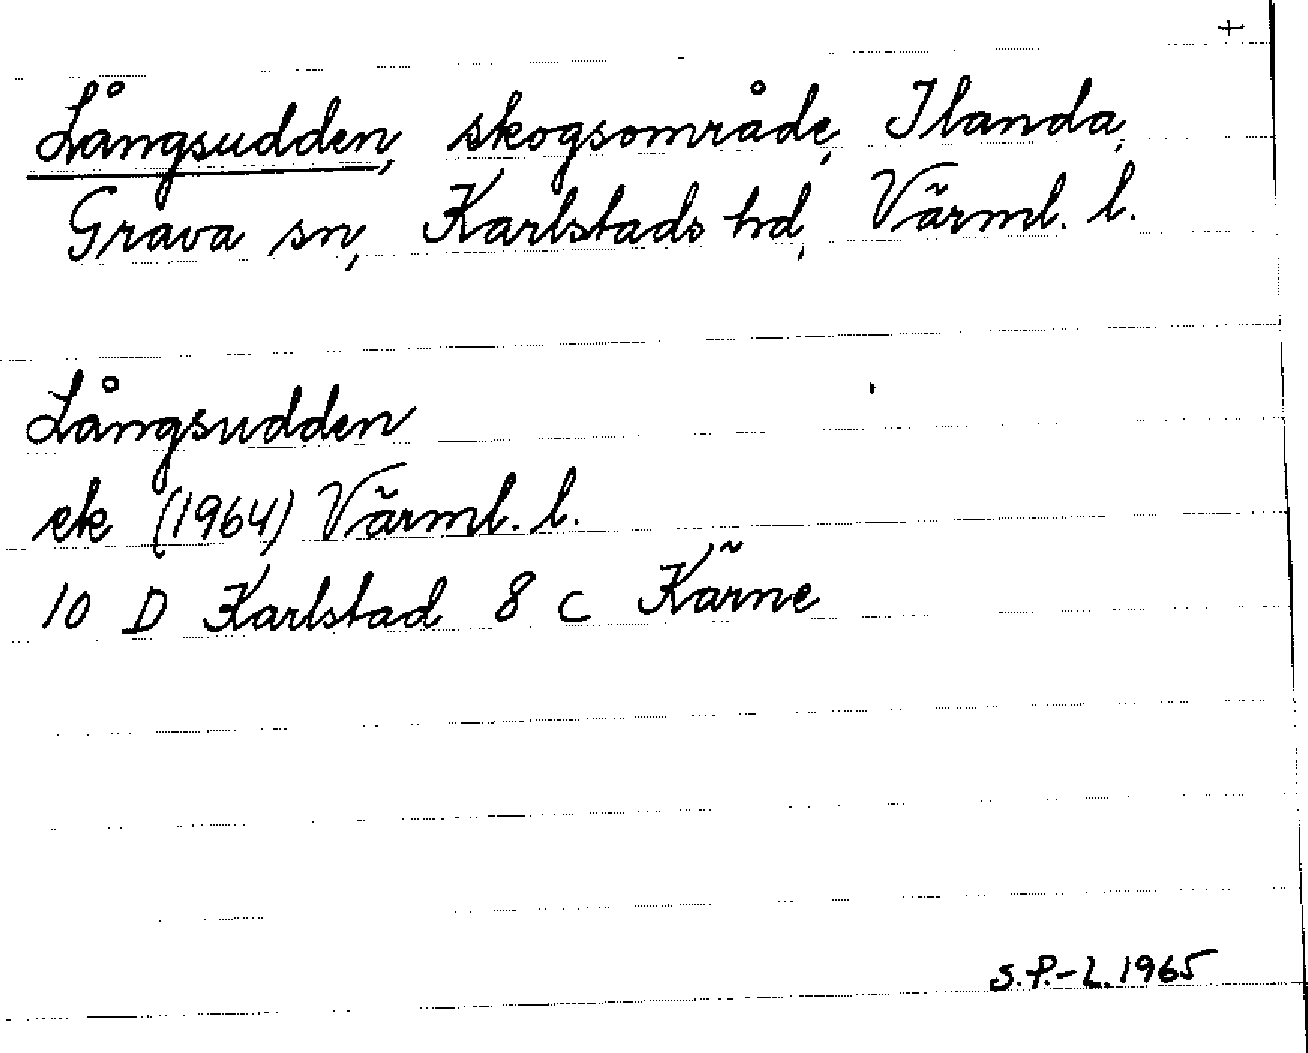 +
Långsudden, skogsområde, Ilanda,
Grava sn, Karlstads hd, Värml. l.
Långsudden
ek (1964) Värml. l.
10 D Karlstad 8 c Kärne
S.P.-L. 1965